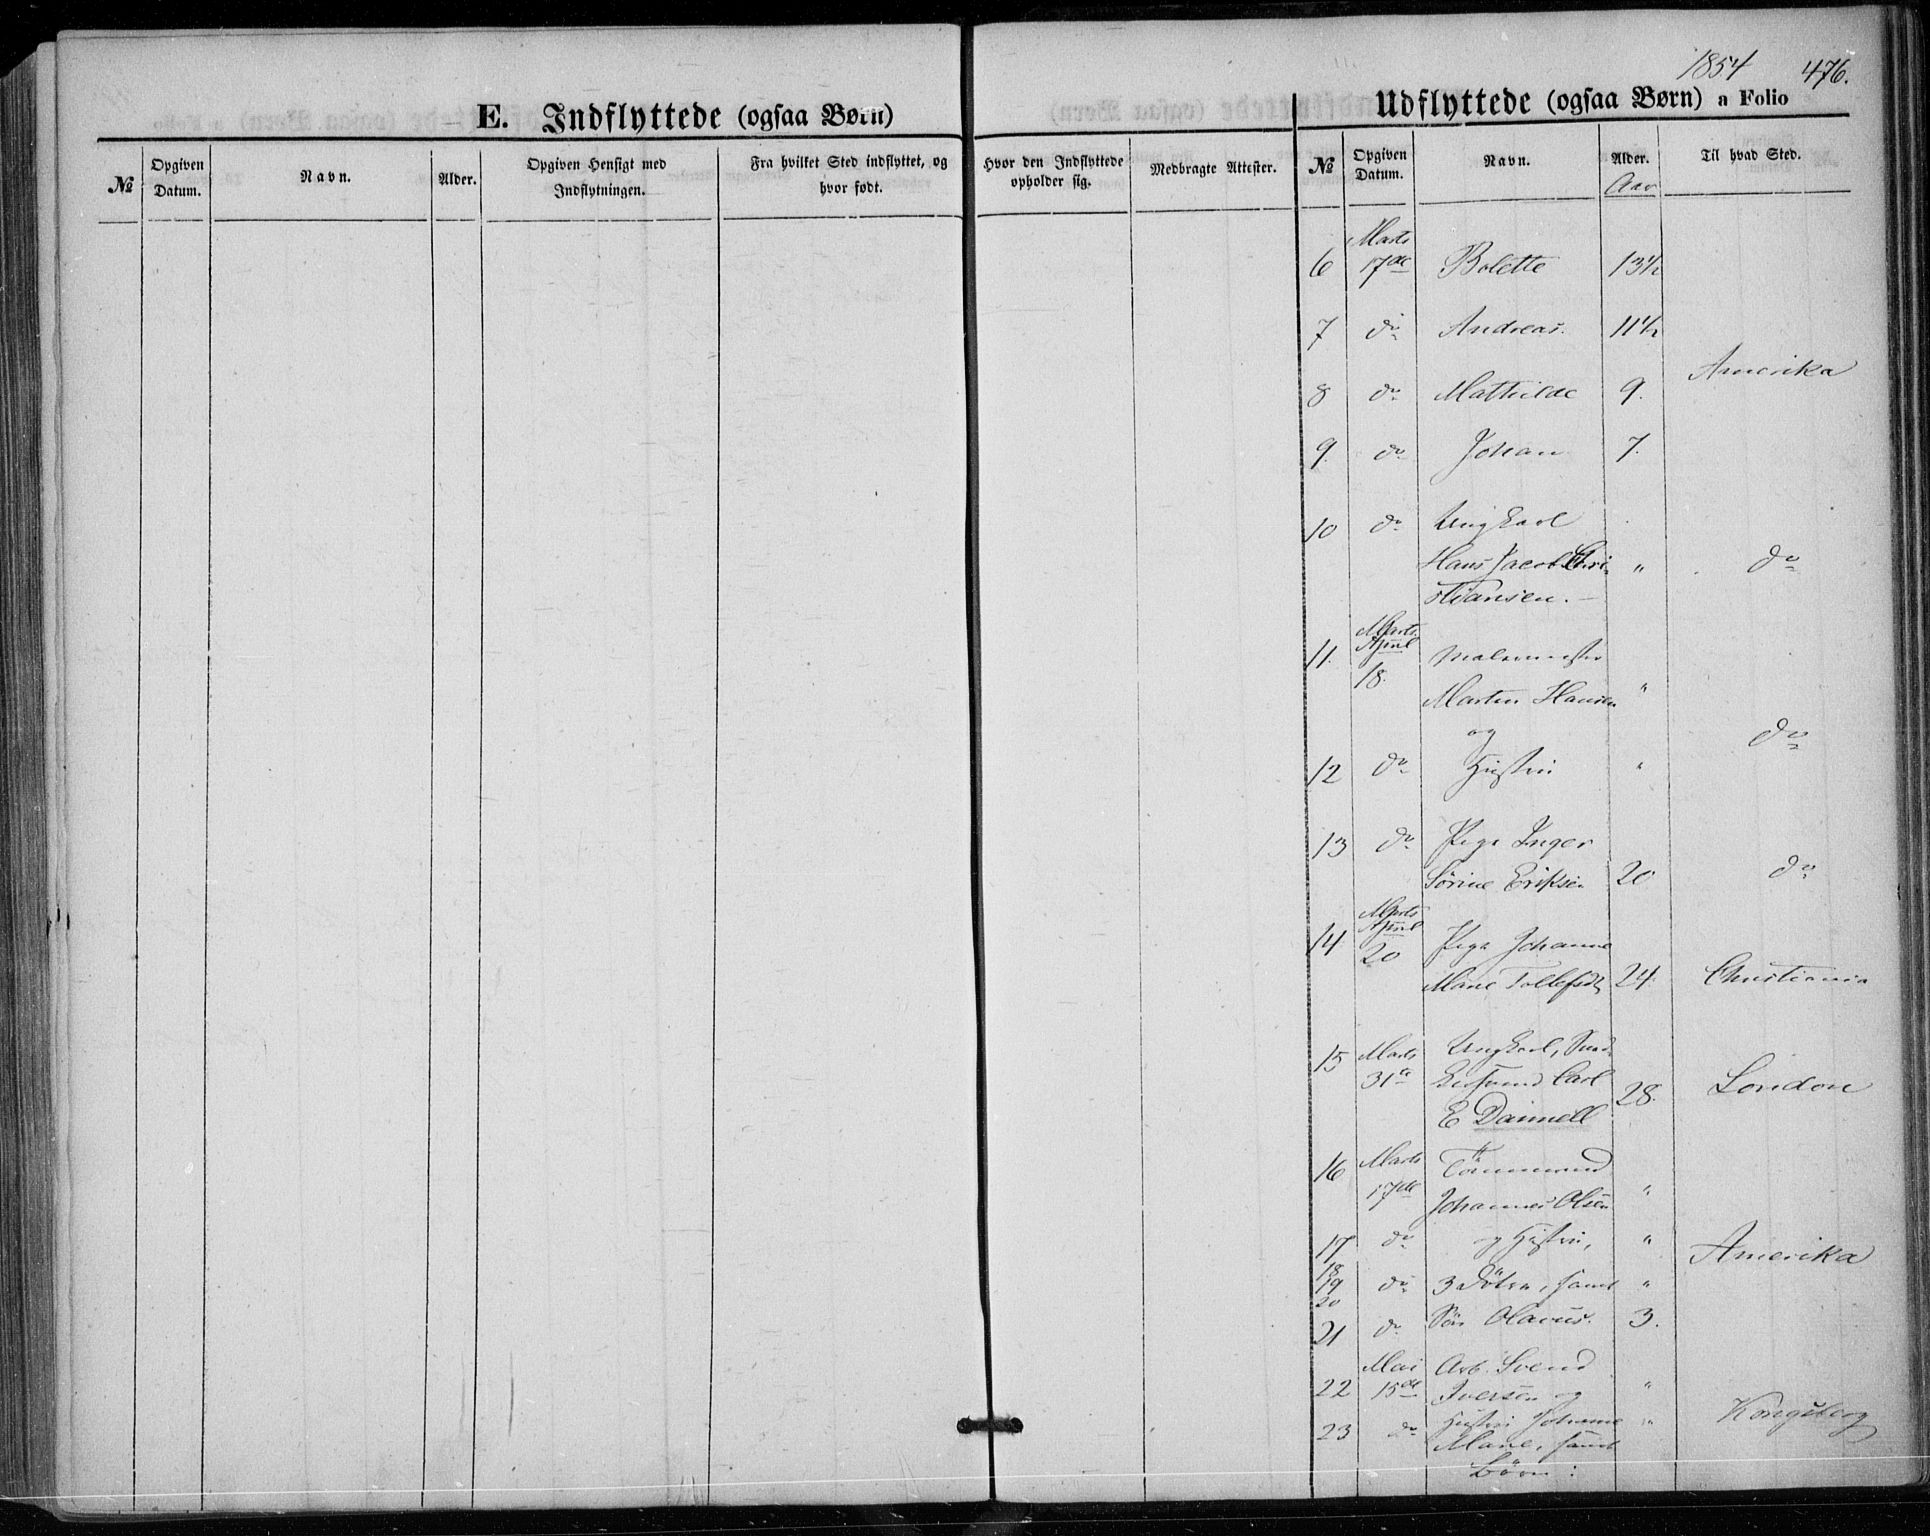 1854 476.
E. Indflyttede (ogsaa Børn)
Udflyttede (ogsaa Børn) a Folio
№ Opgiven Datum. Navn. Alder. Opgiven Hensigt med Indflytningen. Fra hvilket Sted indflyttet, og hvor født. Hvor den Indflyttede opholder sig. Medbragte Attester.
№ Opgiven Datum. Navn. Alder. Til hvad Sted.
Aar
Marts
6 17de Bolette 13½
7 do Andreas. 11½
Amerika
8 do Mathilde 9.
9. do Johan 7.
10 do Ungkarl
Hans Jacob Chri- " do
stiansen.
Marts
April
11. 18. Malermester
Marten Hansen "
og do
12 do Hustru "
13 do Pige Inger
Sørine Eriksen 20 do
Marts
April
14 20 Pige Johanne
Marie Tollefsdtr 24. Christiania
15 Marts Ungkarl,
31te Carl 28. London
E Dannell
16 Marts Tömmermand
17de Johannes Olsen "
17 do og Hustru, " Amerika
18
19 do 3 Døtre, samt "
20
21 do Sön Olavus. 3.
Mai Arb. Svend
22 15de Iversen og "
23 do Hustru Johanne " Kongsberg
Marie, samt
Börn: